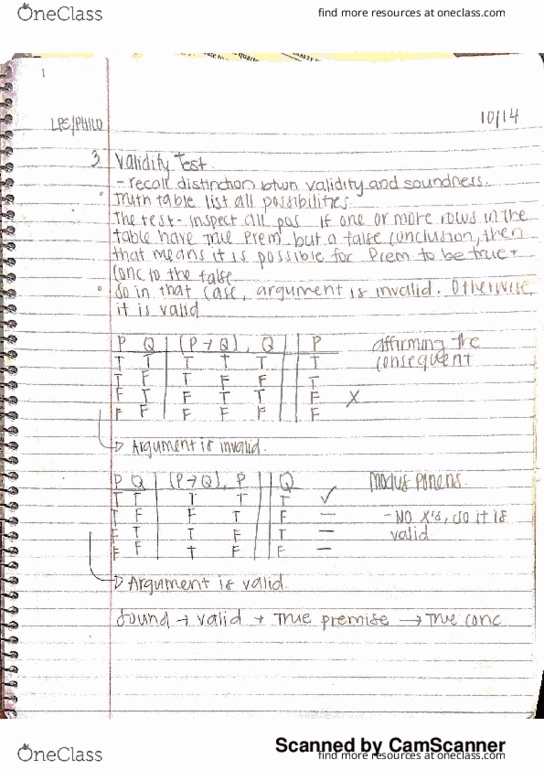 OneClass
find more resources at oneclass.com
1
10/14
LPS/PHILO
3 Validity Test.
- recall distinction btwn validity and soundness.
Truth table list all possibilities.
The test - inspect all pos if one or more rows in the
table have true Prem but a false conclusion, then
that means it is possible for Prem to be true +
conc to the false
so in that case, argument is invalid. Otherwise,
it is valid
P Q | (P → Q), Q || P affirming the
T T | T T T || T consequent
T F | T F F || T
F T | F T T || F X
F F | F F F || F
→ Argument is invalid.
P Q | (P → Q), P || Q Modus Ponens.
T T | T T || T ✓
T F | F T || F — - NO X's, so it is
F T | T F || T — valid
F F | T F || F —
→ Argument is valid.
Sound → valid + True premise → True conc
Scanned by CamScanner
OneClass
find more resources at oneclass.com